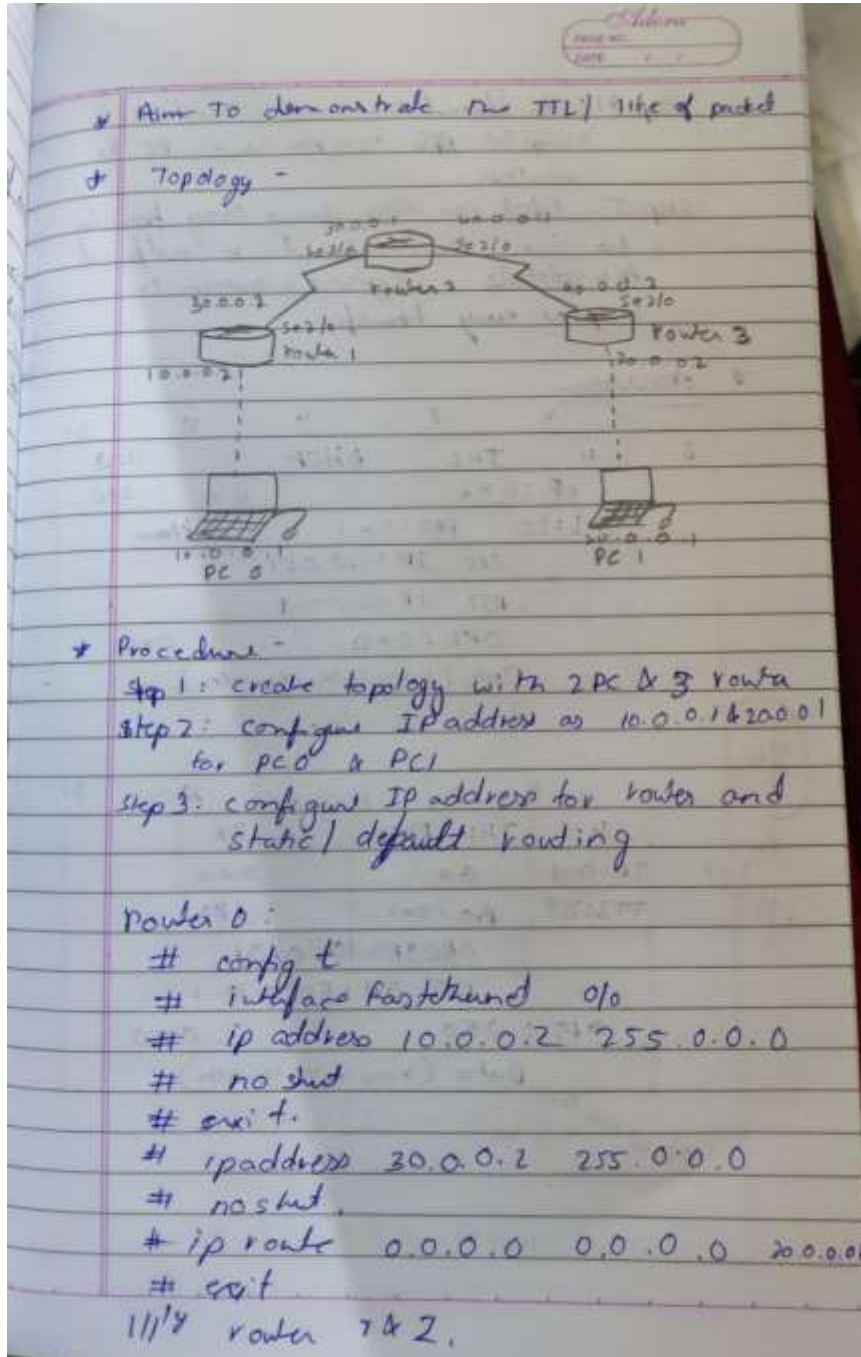 Adora
PAGE NO.
DATE / /
* Aim To demonstrate the TTL/ life of packet
* Topology -
30.0.0.1 40.0.0.1
se2/0 se2/0
router 2
30.0.0.2 40.0.0.2
se2/0 se2/0
router 1 router 3
10.0.0.2 20.0.0.2
10.0.0.1 20.0.0.1
PC 0 PC 1
* Procedure -
Step 1: create topology with 2 PC & 3 router
Step 2: configure IP address as 10.0.0.1 & 20.0.0.1
for PC0 & PC1
Step 3: configure IP address for router and
static / default routing
router 0 :
# config t
# interface fastethernet 0/0
# ip address 10.0.0.2 255.0.0.0
# no shut
# exit.
# ipaddress 30.0.0.2 255.0.0.0
# no shut.
# ip route 0.0.0.0 0.0.0.0
# exit
|||ly router & 2.